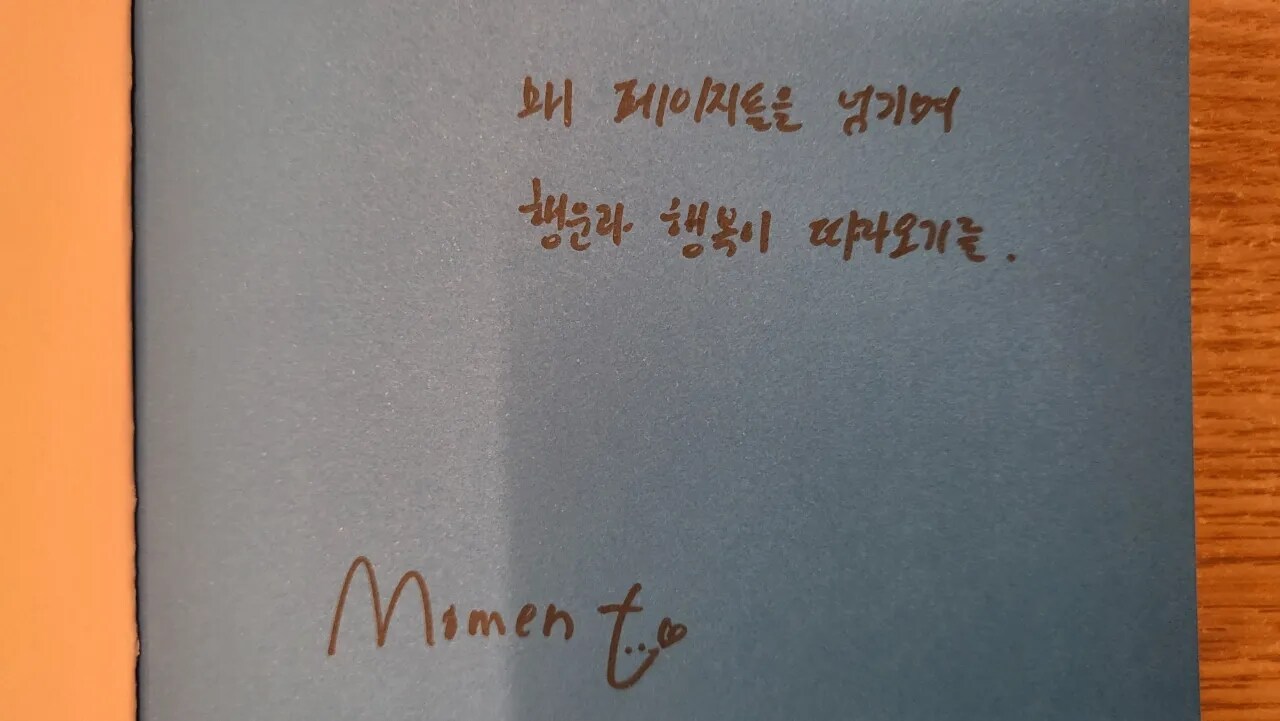 페이지들을 넘기며
행운과 행복이 따라오기를.
Moment